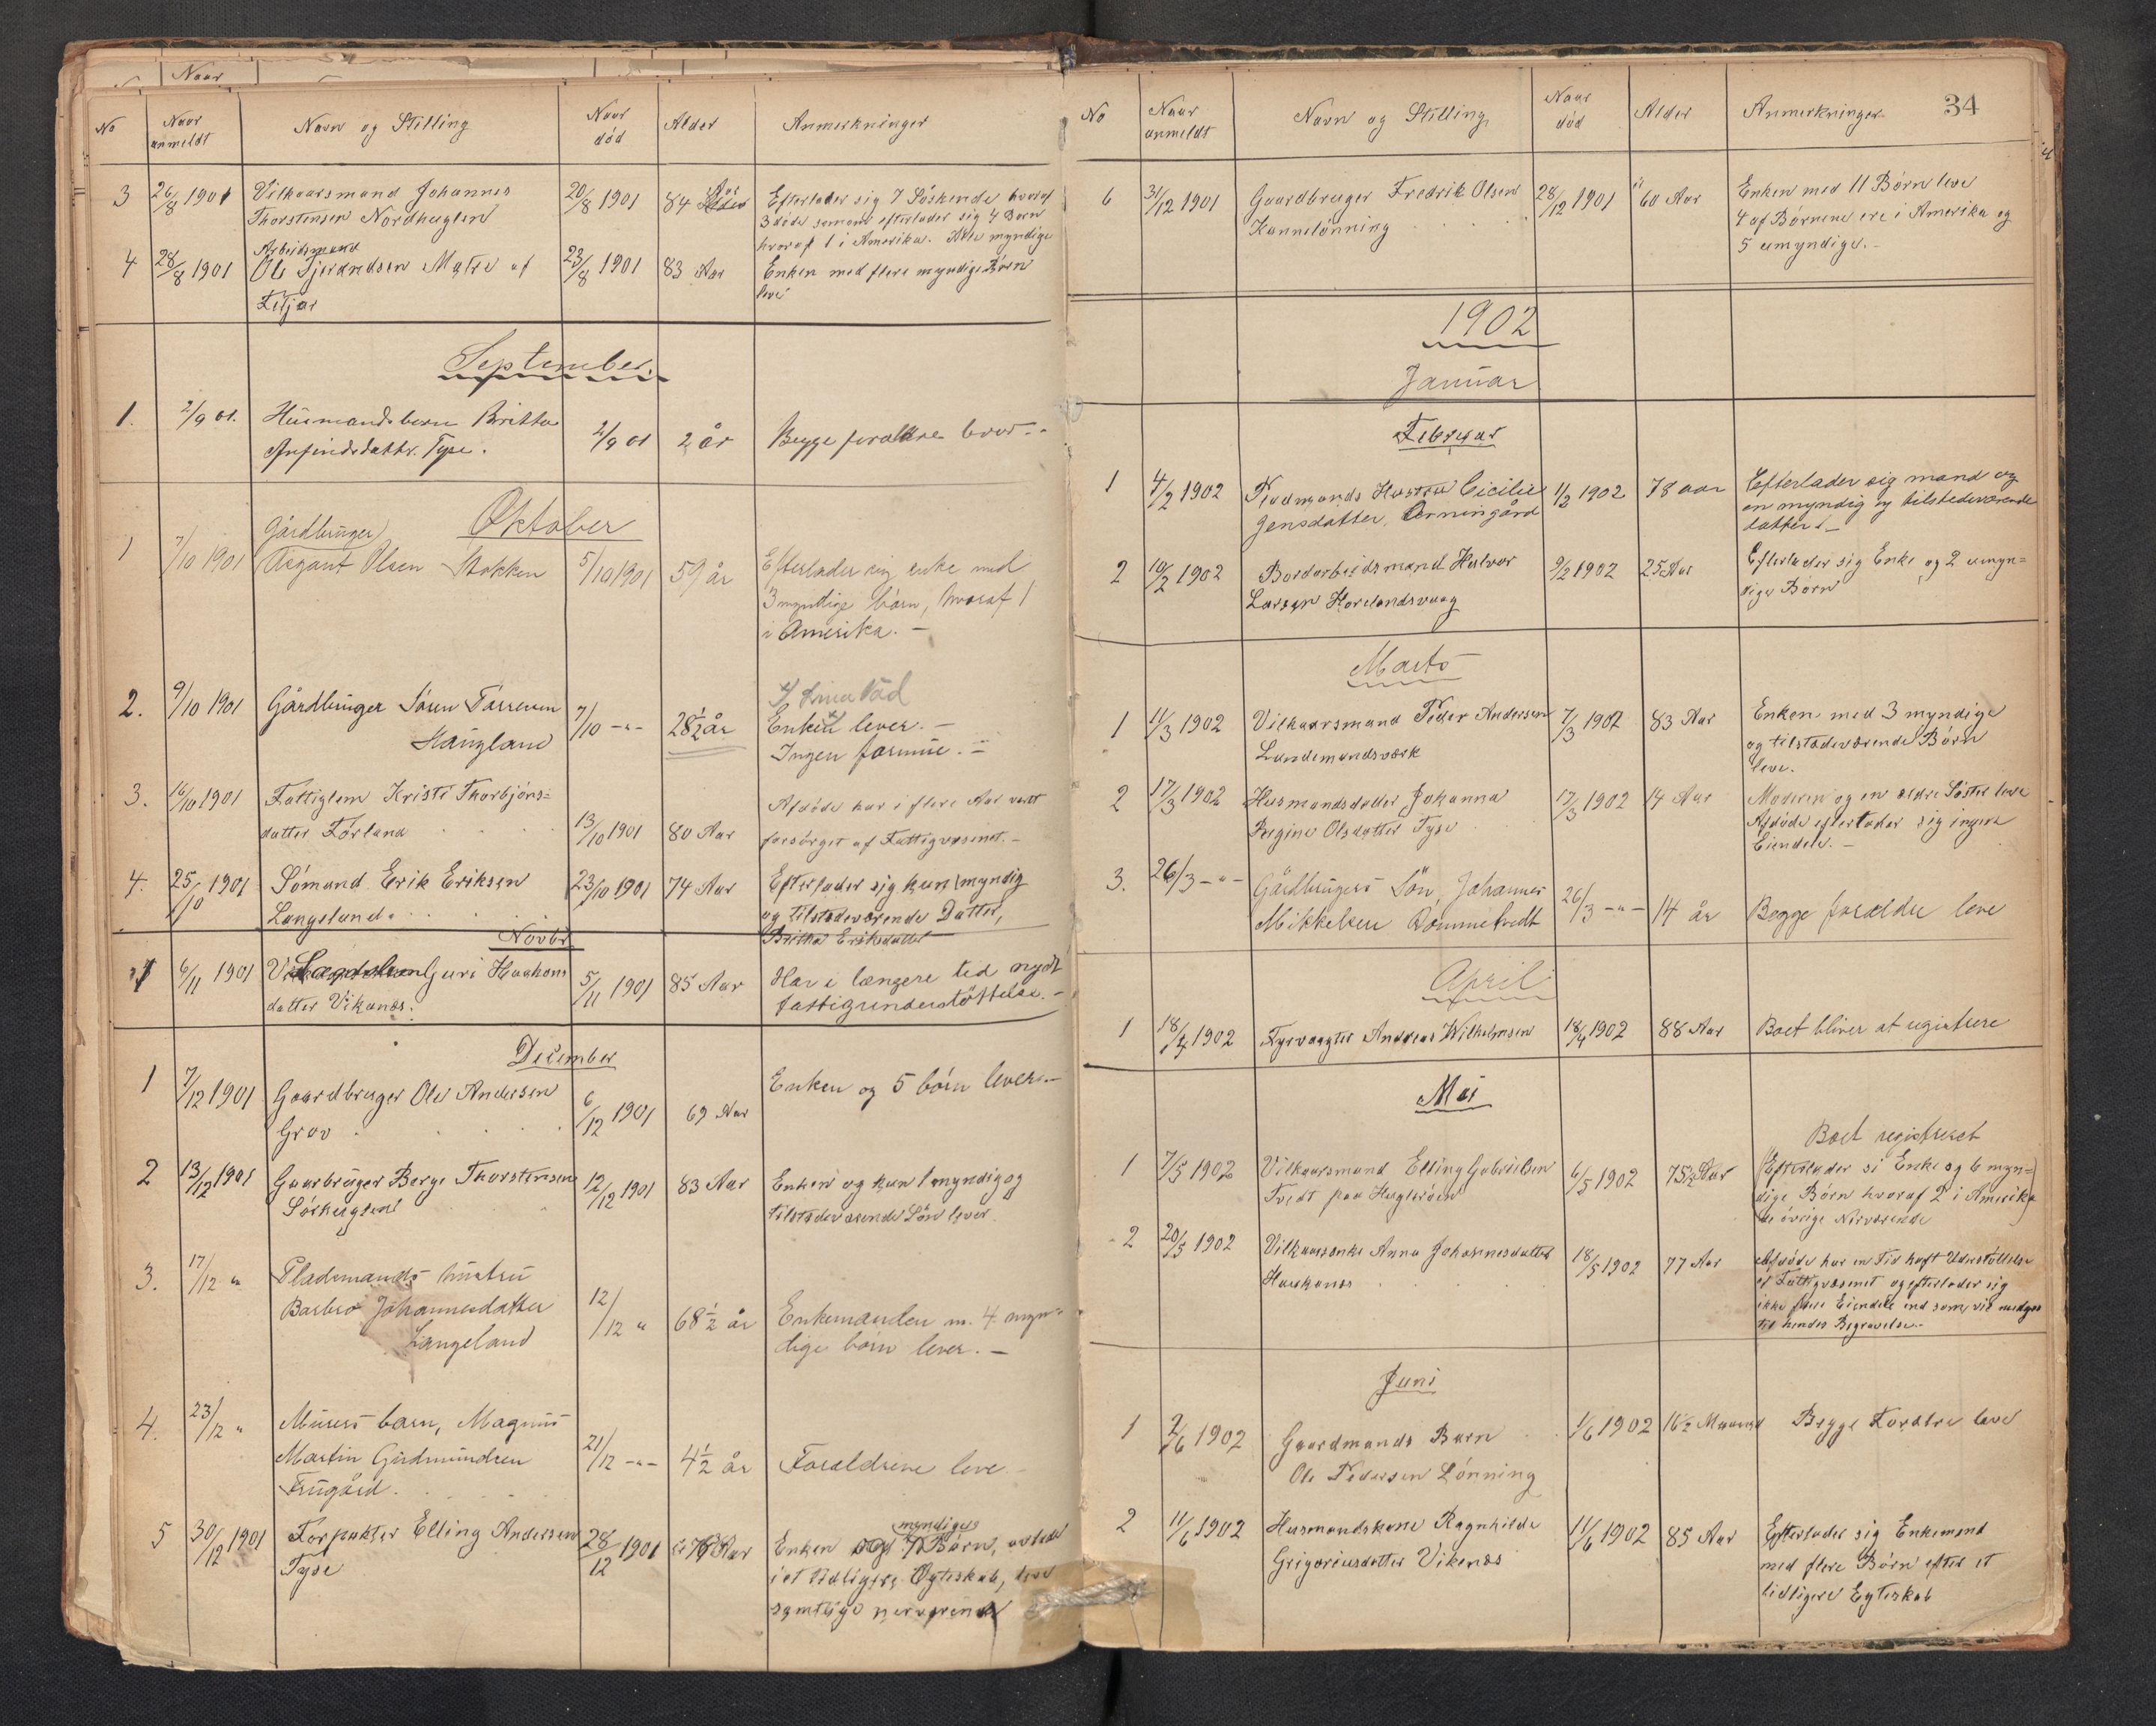 Naar
No
Naar
anmeldt
Navn og Stilling
Naar
död
Alder
Anmerkninger
3
26/8 1901
Vilkaarsmand Johannes
Thorstensen Nordhuglen
20/8 1901
84 Aar
Efterlader sig 7 Söskende hvoraf
3 döde somane efterlader sig 4 Born
hvoraf 1 i Amerika. Alle myndige
4
28/8 1901
Arbeidsmand
Ole Tjerandsen Matre af
Fitjar
23/8 1901
83 Aar
Enken med flere myndige Børn
leve
September.
1.
2/9 01.
Husmandsbarn Britha
Anfindsdattr. Tyse.
2/9 01
2 år
Begge foraldre lever.-
Oktober
1
7/10 1901
Gårdbruger
Asgaut Olsen Stokken
5/10 1901
59 år
Efterlader sig enke med
3 myndige börn, hvoraf 1
i Amerika.-
2.
9/10 1901
Gårdbruger Sören
Haugland
7/10 -"-
28 1/2 år
Enken lever.-
Ingen formue.-
3.
16/10 1901
Fattiglem Kristi Thorbjörns=
datter Förland
13/10 1901
80 Aar
Afdöde har i flere Aar været
forsörget af Fattigvæsenet.-
4.
25/10 1901
Sömand Erik Eriksen
Langeland.
23/10 1901
74 Aar
Efterlader sig kun 1 myndig
og tilstedeværende Datter,
Britha Eriksdatter
Novbr
1
6/11 1901
Lægdslem Guri Haakons
datter Vikanæs.
5/11 1901
85 Aar
Har i længere tid nydt
fattigunderstöttelse.-
December
1
7/12 1901
Gaardbruger Ole Andersen
Grov
6/12 1901
69 Aar
Enken og 5 börn lever.-
2
13/12 1901
Gaarbruger Berge Thorstensen
Sörhuglen
12/12 1901
83 Aar
Enken og kun 1 myndig og
tilstedeværende Sön lever.
3.
17/12 "
Pladsmands hustru
Barbro Johannesdatter
Langeland
12/12 "
68 1/2 år
Enkemanden m. 4 myn=
dige börn lever.-
4.
23/12 "
Murers barn, Magnus
Martin Gudmundsen
Trugård.
21/12 -"-
4 1/2 år
Foraldrene leve.-
5
30/12 1901
Forpakter Elling Andersen
Tyse
28/12 1901
Aar
myndige
Enken og 7 Börn, avlede
i et tidligere Ægteskab, leve
samtlige nerverende
No
Naar
anmeldt
Navn og Stilling
Naar
död
Alder
Anmerkninger
34
6
31/12 1901
Gaardbruger Fredrik Olsen
Hannelönning
28/12 1901
60 Aar
Enken med 11 Börn leve
4 af Börnene ere i Amerika og
5 umyndige.-
1902
Januar
Februar
1
4/2 1902
Pladsmands Hustru Cicilie
Jensdatter,
1/2 1902
78 aar
Efterlader sig mand og
en myndig og tilstedeværende
datter.-
2
10/2 1902
Bordarbeidsmand Halvor
Larsen Horelandsvaag
9/2 1902
25 Aar
Efterlader sig Enke og 2 umyn=
dige Börn
Marts
1
11/3 1902
Vilkaarsmand Peder Andersen
Landemandsværk
7/3 1902
83 Aar
Enken med 3 myndige
og tilstedeværende Börn
leve.
2
17/3 1902
Husmandsdatter Johanna
Regine Olsdatter Tyse
17/3 1902
14 Aar
Moderen og en ældre Söster leve
Afdöde efterlader sig ingen
Eiendele.-
3.
26/3 -"-
Gårdbrugers Sön, Johannes
Mikkelsen Rommetvedt
26/3 -"-
14 år
Begge forældre leve
April
1
18/4 1902
Fyrvogter Andreas Wilhelmsen
18/4 1902
88 Aar
Boet bliver at registrere
Mai
1
7/5 1902
Vilkaarsmand Elling Gabrielsen
Tvedt paa Huglaröen
6/5 1902
75 1/2 Aar
Boet registreret
(Efterlader si Enke og 6 myn=
dige Börn hvoraf 2 i Amerika)
de övrige Nerværende
2
20/5 1902
Vilkaarsenke Anna Johannesdatter
Huskanes
18/5 1902
77 Aar
Afdöde har en Tid haft Understöttelse
af Fattigvæsenet og efterlader sig
ikke flere Eiendele end som vil medgaa
til hendes Begravelse.-
Juni
1
2/6 1902
Gaardmands Barn
Ole Pedersen Lönning
1/6 1902
16 1/2 Maaned
Begge Foraldre leve
2
11/6 1902
Husmandskone Ragnhilde
Grigoriusdatter Vikenæs
11/6 1902
85 Aar
Efterlader sig Enkemand
med flere Börn efter et
tidligere Egteskab